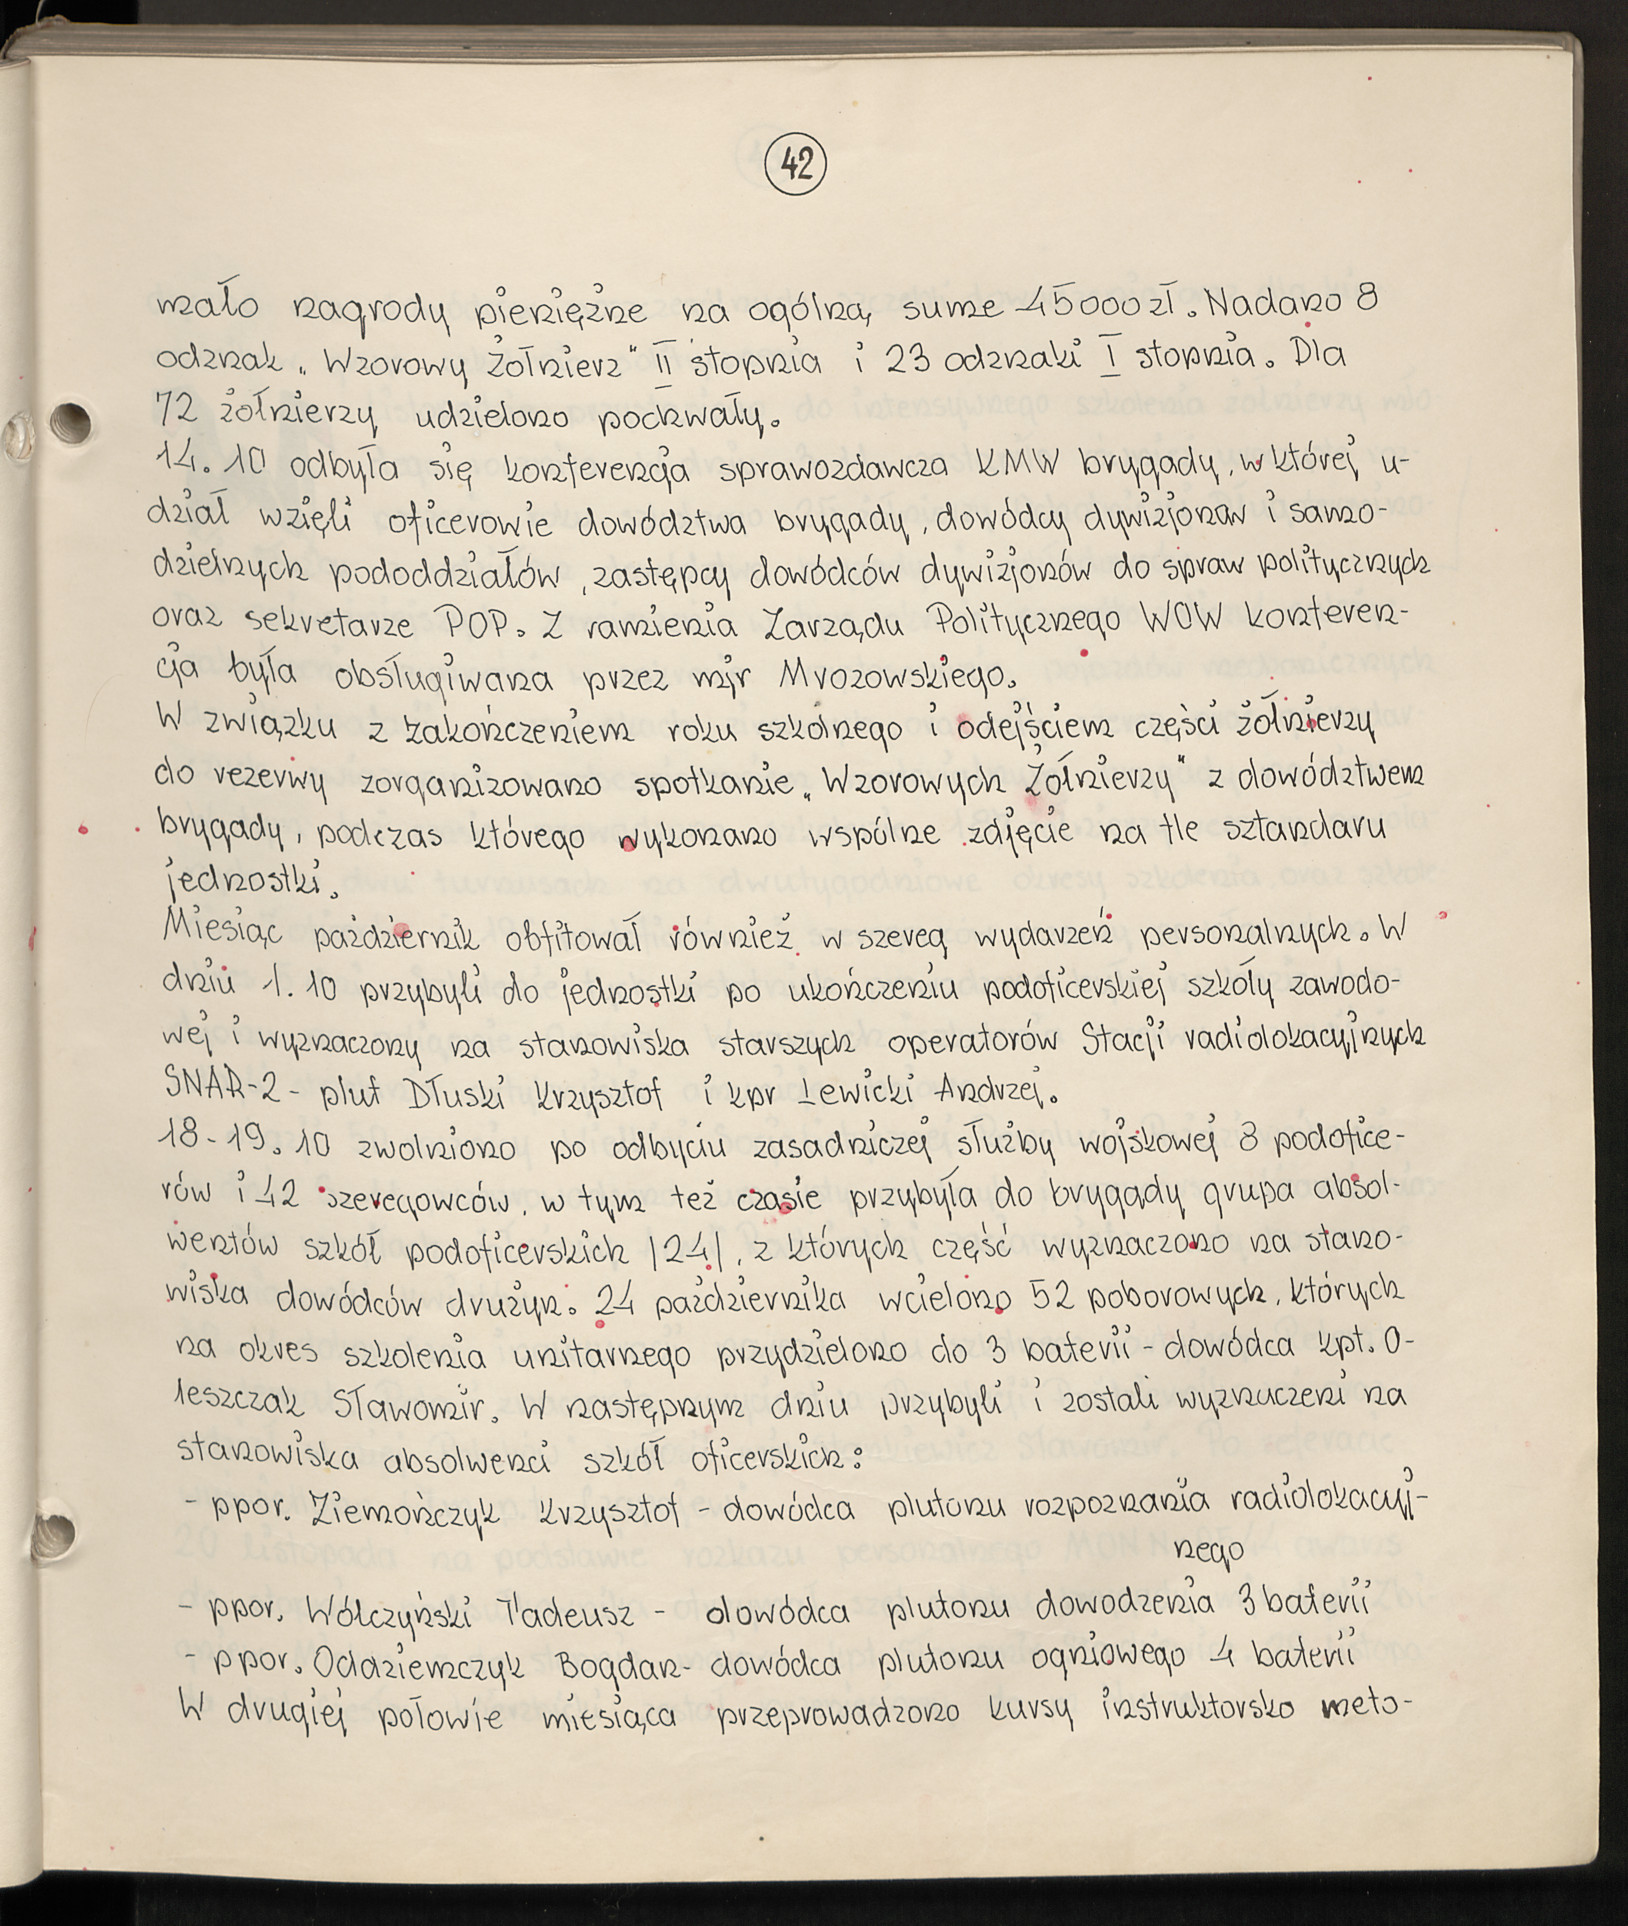 42
mało nagrody pieniężne na ogólną sume 45000 zł. Nadano 8
odznak „Wzorowy Żołnierz" II stopnia i 23 odznaki I stopnia. Dla
72 żołnierzy udzielono pochwały.
14.10 odbyła się konferencja sprawozdawcza KMW brygady, w której u-
dział wzięli oficerowie dowództwa brygady, dowódcy dywizjonów i samo-
dzielnych pododdziałów, zastępcy dowódców dywizjonów do spraw politycznych
oraz sekretarze POP. Z ramienia Zarządu Politycznego WOW konferen-
cja była obsługiwana przez mjr Mrozowskiego.
W związku z zakończeniem roku szkolnego i odejściem części żołnierzy
do rezerwy zorganizowano spotkanie „Wzorowych Żołnierzy" z dowództwem
brygady, podczas którego wykonano wspólne zdjęcie na tle sztandaru
jednostki.
Miesiąc październik obfitował również w szereg wydarzeń personalnych. W
dniu 1.10 przybyli do jednostki po ukończeniu podoficerskiej szkoły zawodo-
wej i wyznaczony na stanowiska starszych operatorów Stacji radiolokacyjnych
SNAR-2 - plut Dłuski Krzysztof i kpr Lewicki Andrzej.
18-19.10 zwolniono po odbyciu zasadniczej służby wojskowej 8 podofice-
rów i 42 szeregowców, w tym też czasie przybyła do brygady grupa absol-
wentów szkół podoficerskich /24/, z których część wyznaczono na stano-
wiska dowódców drużyn. 24 października wcielono 52 poborowych, których
na okres szkolenia unitarnego przydzielono do 3 baterii - dowódca kpt. O-
leszczak Sławomir. W następnym dniu przybyli i zostali wyznaczeni na
stanowiska absolwenci szkół oficerskich:
- ppor. Ziemończyk Krzysztof - dowódca plutonu rozpoznania radiolokacyj-
nego
- ppor. Wółczyński Tadeusz - dowódca plutonu dowodzenia 3 baterii
- ppor. Oddziemczyk Bogdan - dowódca plutonu ogniowego 4 baterii
W drugiej połowie miesiąca przeprowadzono kursy instruktorsko meto-